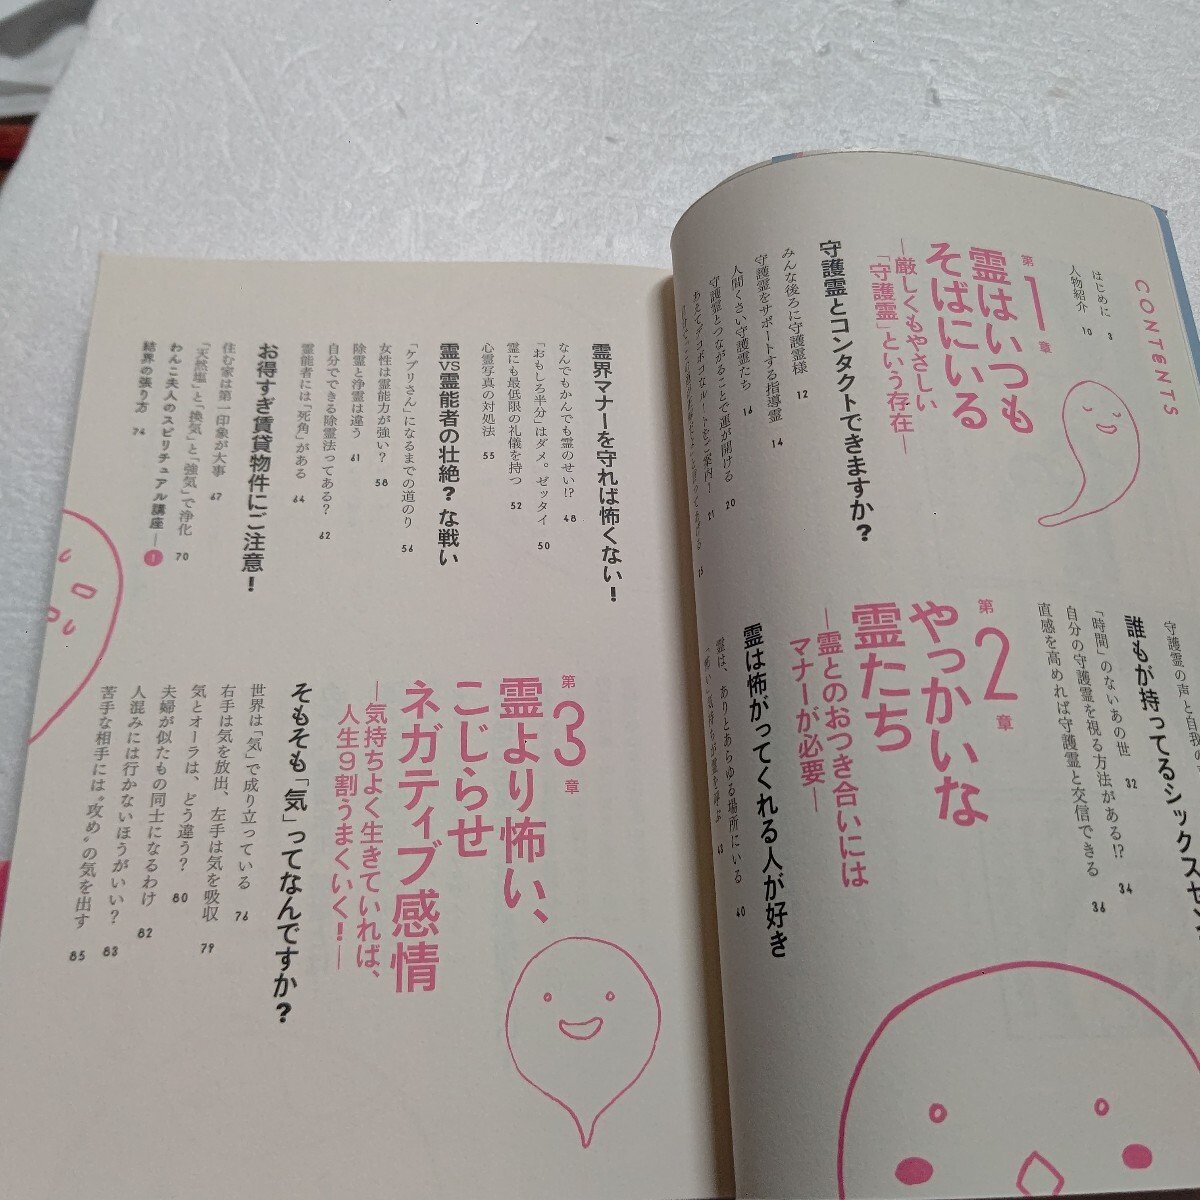 CONTENTS
はじめに 3
人物紹介 10
第1章
霊はいつも
そばにいる
―厳しくもやさしい
「守護霊」という存在―
守護霊とコンタクトできますか?
みんな後ろに守護霊様 12
守護霊をサポートする指導霊 14
人間くさい守護霊たち 16
守護霊とつながることで運が開ける 20
あえてデコボコなルートをご案内! 21
守護霊の声と自我の
「時間」のないあの世 32
自分の守護霊を視る方法がある!? 34
直感を高めれば守護霊と交信できる 36
誰もが持ってるシックスセン
第2章
やっかいな
霊たち
―霊とのおつき合いには
マナーが必要―
霊は怖がってくれる人が好き
霊は、ありとあらゆる場所にいる 40
「怖い」気持ちが霊を呼ぶ 43
霊界マナーを守れば怖くない!
なんでもかんでも霊のせい!? 48
「おもしろ半分」はダメ。ゼッタイ 50
霊にも最低限の礼儀を持つ 52
心霊写真の対処法 55
霊VS霊能者の壮絶?な戦い
「ケプリさん」になるまでの道のり 56
女性は霊能力が強い? 58
除霊と浄霊は違う 61
自分でできる除霊法ってある? 62
霊能者には「死角」がある 64
お得すぎ賃貸物件にご注意!
住む家は第一印象が大事 67
「天然塩」と「換気」と「強気」で浄化 70
わんこ夫人のスピリチュアル講座―1
結界の張り方 74
第3章
霊より怖い、
こじらせ
ネガティブ感情
―気持ちよく生きていれば、
人生9割うまくいく!―
そもそも「気」ってなんですか?
世界は「気」で成り立っている 76
右手は気を放出、左手は気を吸収 79
気とオーラは、どう違う? 80
夫婦が似たもの同士になるわけ 82
人混みには行かないほうがいい? 83
苦手な相手には“攻め”の気を出す 85